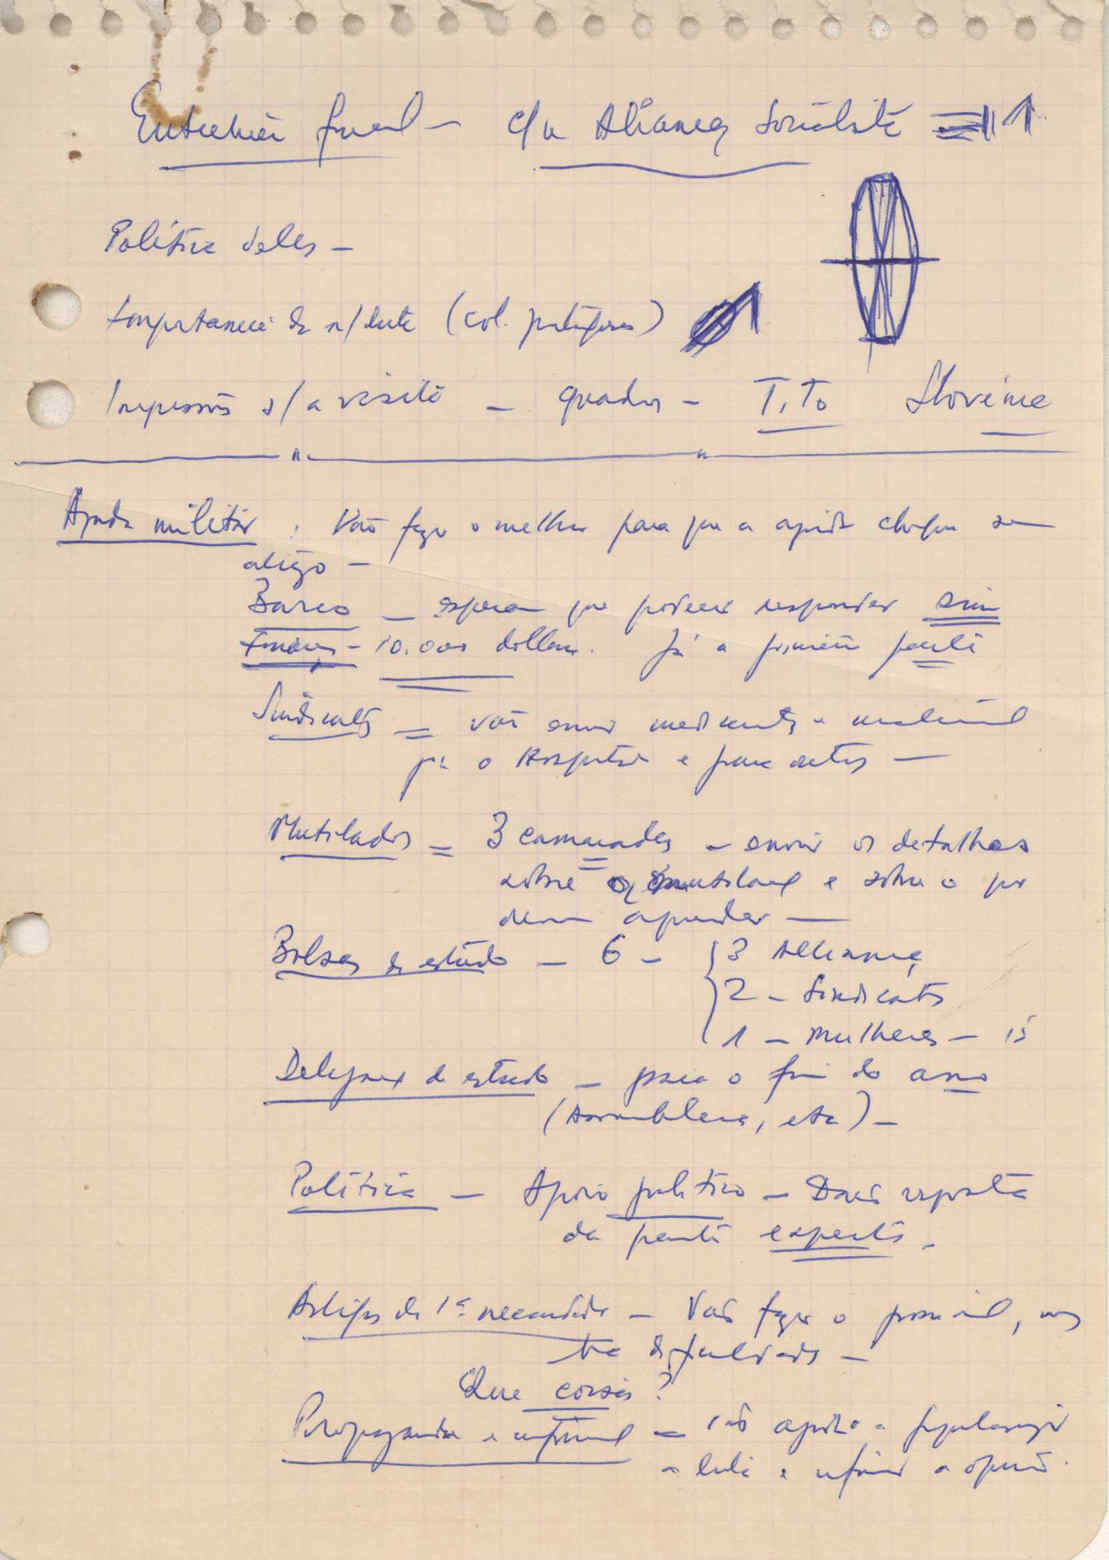 Entrevista final – c/a Aliança Socialista
Política deles –
Importância da n/luta (col. portuguesas)
Impressões s/a visita – quadros – Tito Slovénie
Ajuda militar : Vão fazer o melhor para que a ajuda chegue sem
atraso –
Barco – esperam que poderei responder sim
10.000 dollars. Já a primeira parte
Sindicatos = vão enviar medicamentos e material
pª o Hospital e para outros –
Mutilados = 3 camaradas – enviar os detalhes
sobre a mutilação e sobre o que
devem aprender –
Bolsas de estudo – 6 – 3 Alliança
2 – Sindicatos
1 – Mulheres –
Delegação de estudo – para o fim do ano
(Assembleia, etc) –
Política – Apoio político – Darão resposta
da parte
Artigos de 1ª necessidade – Vão fazer o possível, mas
há dificuldades –
Que coisas?
Propaganda e = vão ajudar a popularizar
a luta e informar a opinião.